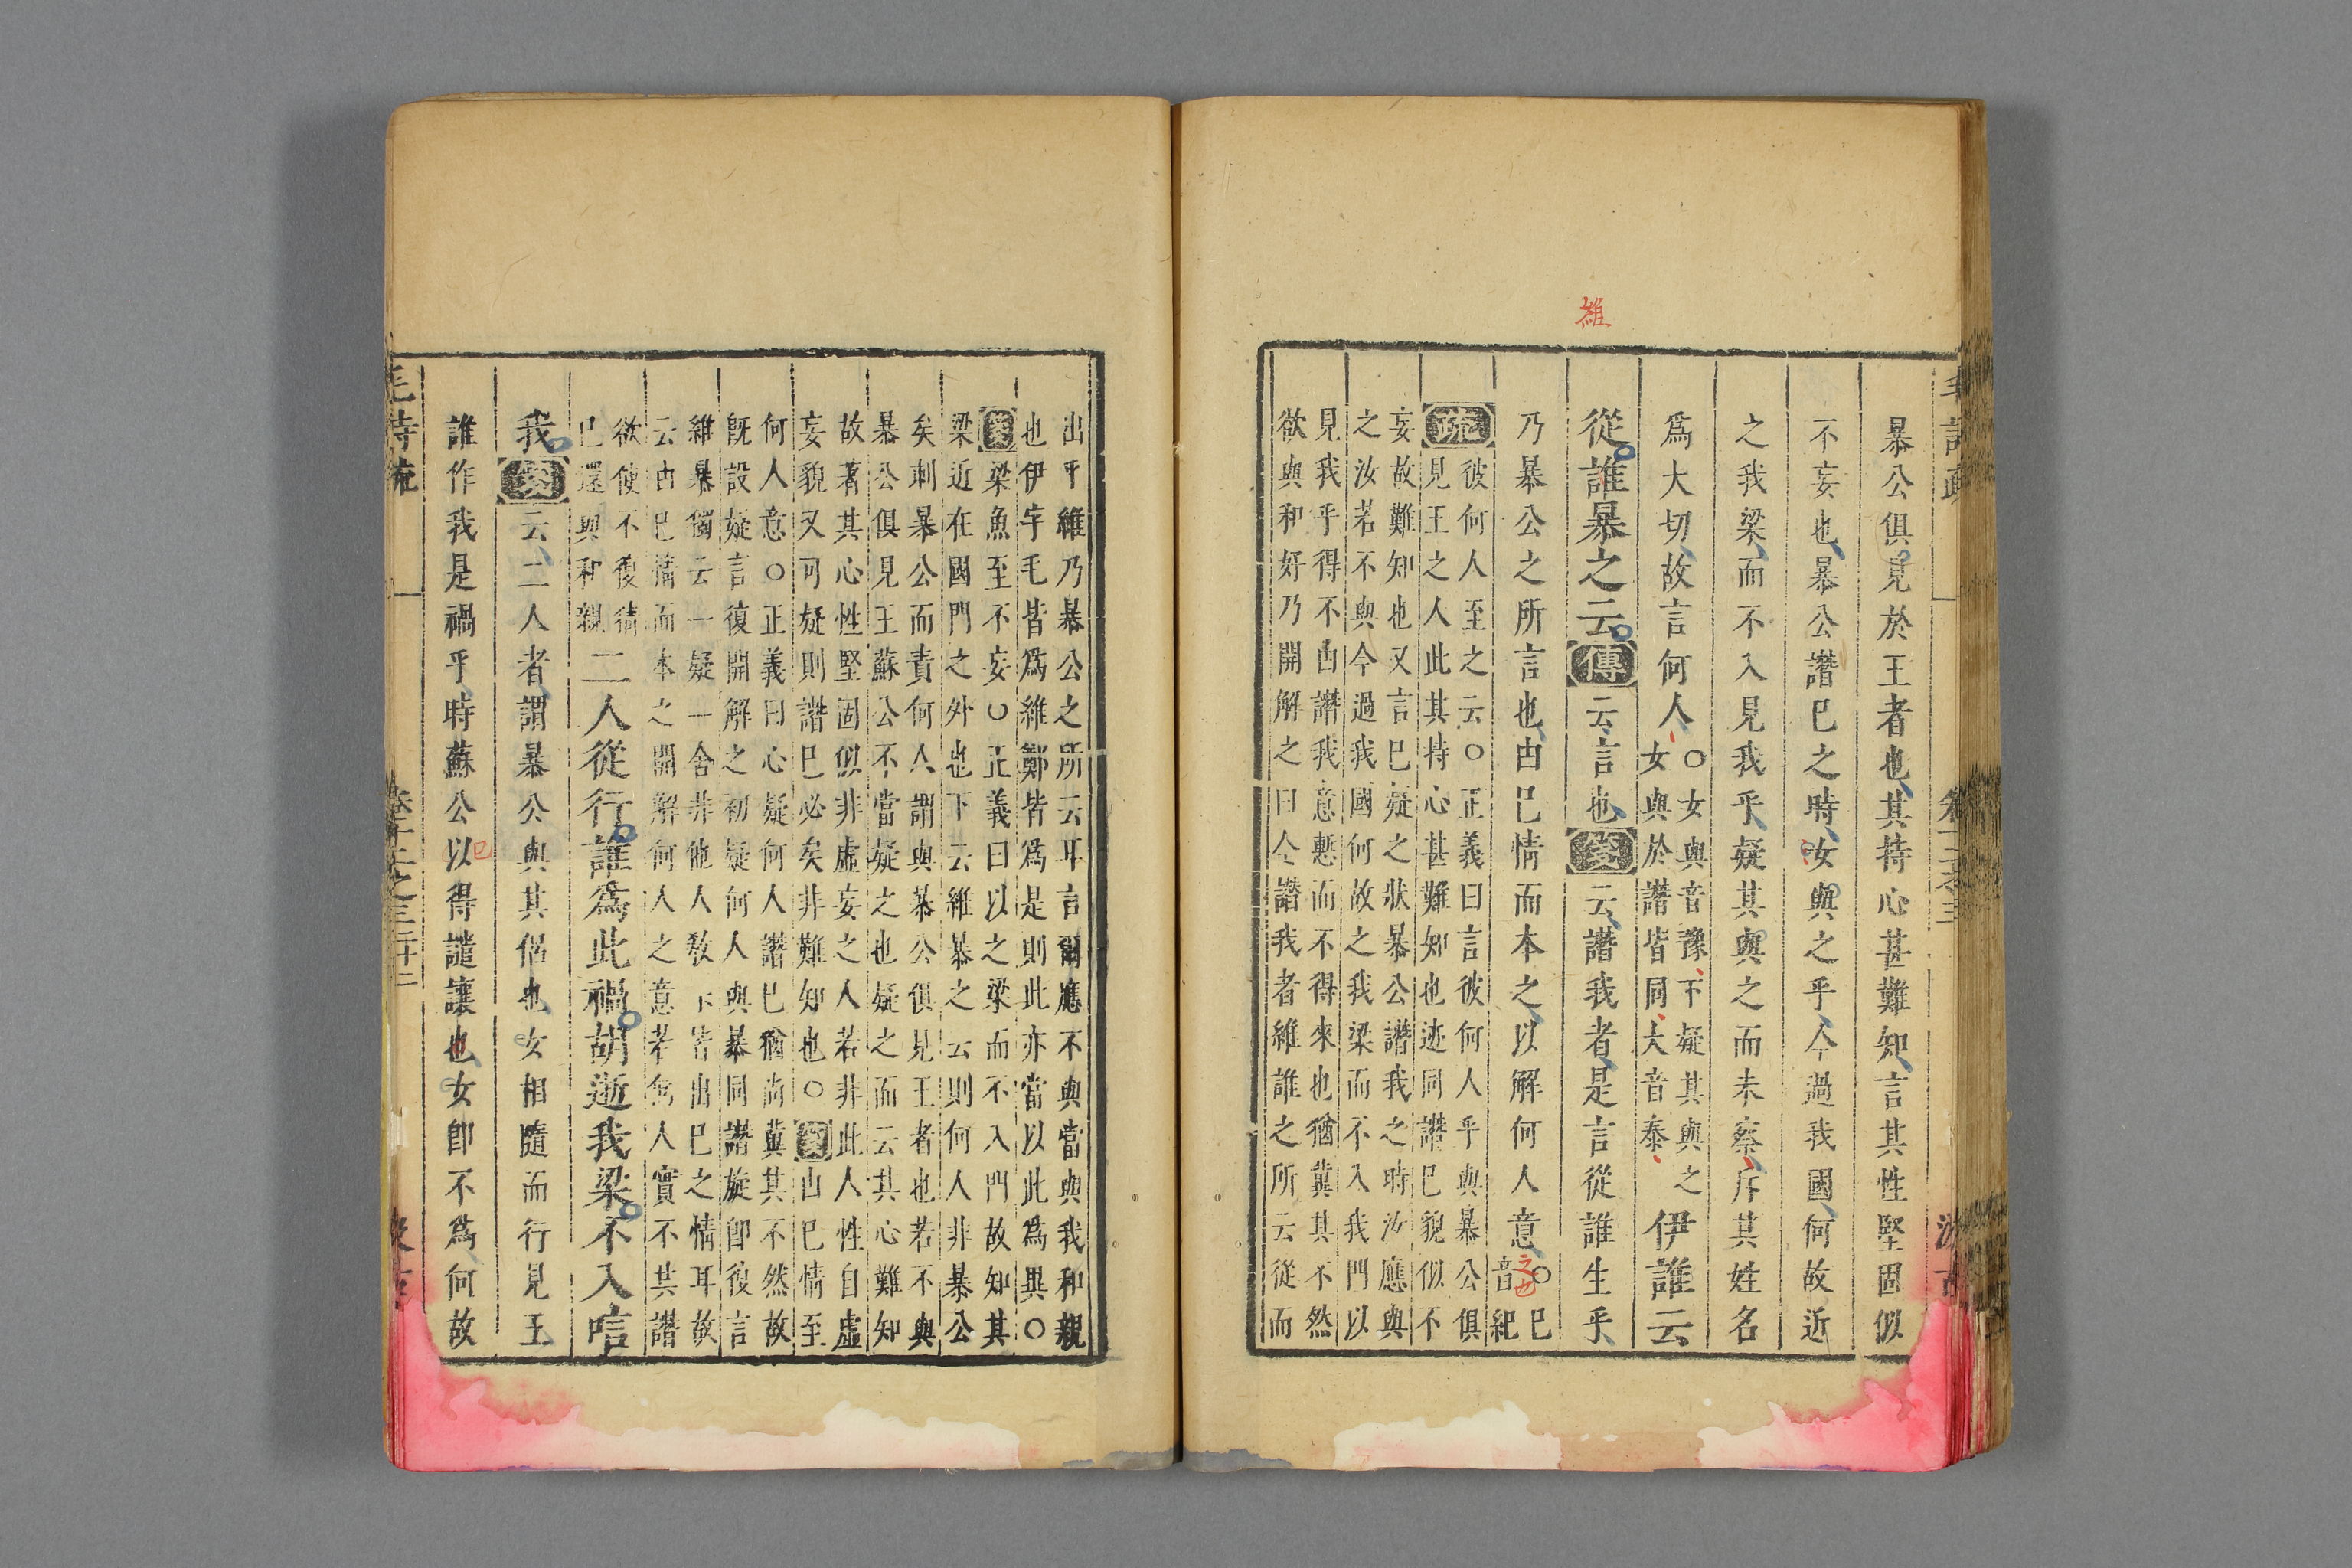 維
暴公俱見於王者也其持心甚難知言其性堅固似
不妄也暴公譖巳之時女與之乎今過我國何故近
之我梁而不入見我乎疑其與之而未察斥其姓名
爲大切故言何人○女與音豫下疑其與之
女與於譖皆同大音泰
伊誰云
從誰暴之云傳云言也箋云譖我者是言從誰生乎
乃暴公之所言也由巳情而本之以解何人意○巳
音紀
之也
疏彼何人至之云○正義曰言彼何人乎與暴公俱
見王之人此其持心甚難知也迹同譖巳貌似不
妄故難知也又言巳疑之狀暴公譖我之時汝應與
之汝若不與今過我國何故之我梁而不入我門以
見我乎得不由譖我意慙而不得來也猶冀其不然
欲與和好乃開解之曰今譖我者維誰之所云從而
出乎維乃暴公之所云耳言爾應不與當與我和親
也伊字毛皆爲維鄭皆爲是則此亦當以此爲異○
箋梁魚至不妄○正義曰以之梁而不入門故知其
梁近在國門之外也下云維暴之云則何人非暴公
矣刺暴公而責何人謂與暴公俱見王者也若不與
暴公俱見王蘇公不當疑之也疑之而云其心難知
故著其心性堅固似非虛妄之人若非此人性自虛
妄貌又可疑則譖巳必矣非難知也○箋由巳情至
何人意○正義曰心疑何人譖巳猶尚冀其不然故
旣設疑言復開解之初疑何人與暴同譖旋卽復言
維暴獨云一疑一舍非他人教下皆出巳之情耳故
云由巳情而本之開解何人之意若何人實不共譖
欲使不復猜
巳還與和親
二人從行誰爲此禍胡逝我梁不入唁
我箋云二人者謂暴公與其侶也女相隨而行見王
誰作我是禍乎時蘇公以得譴讓也女卽不爲何故
巳